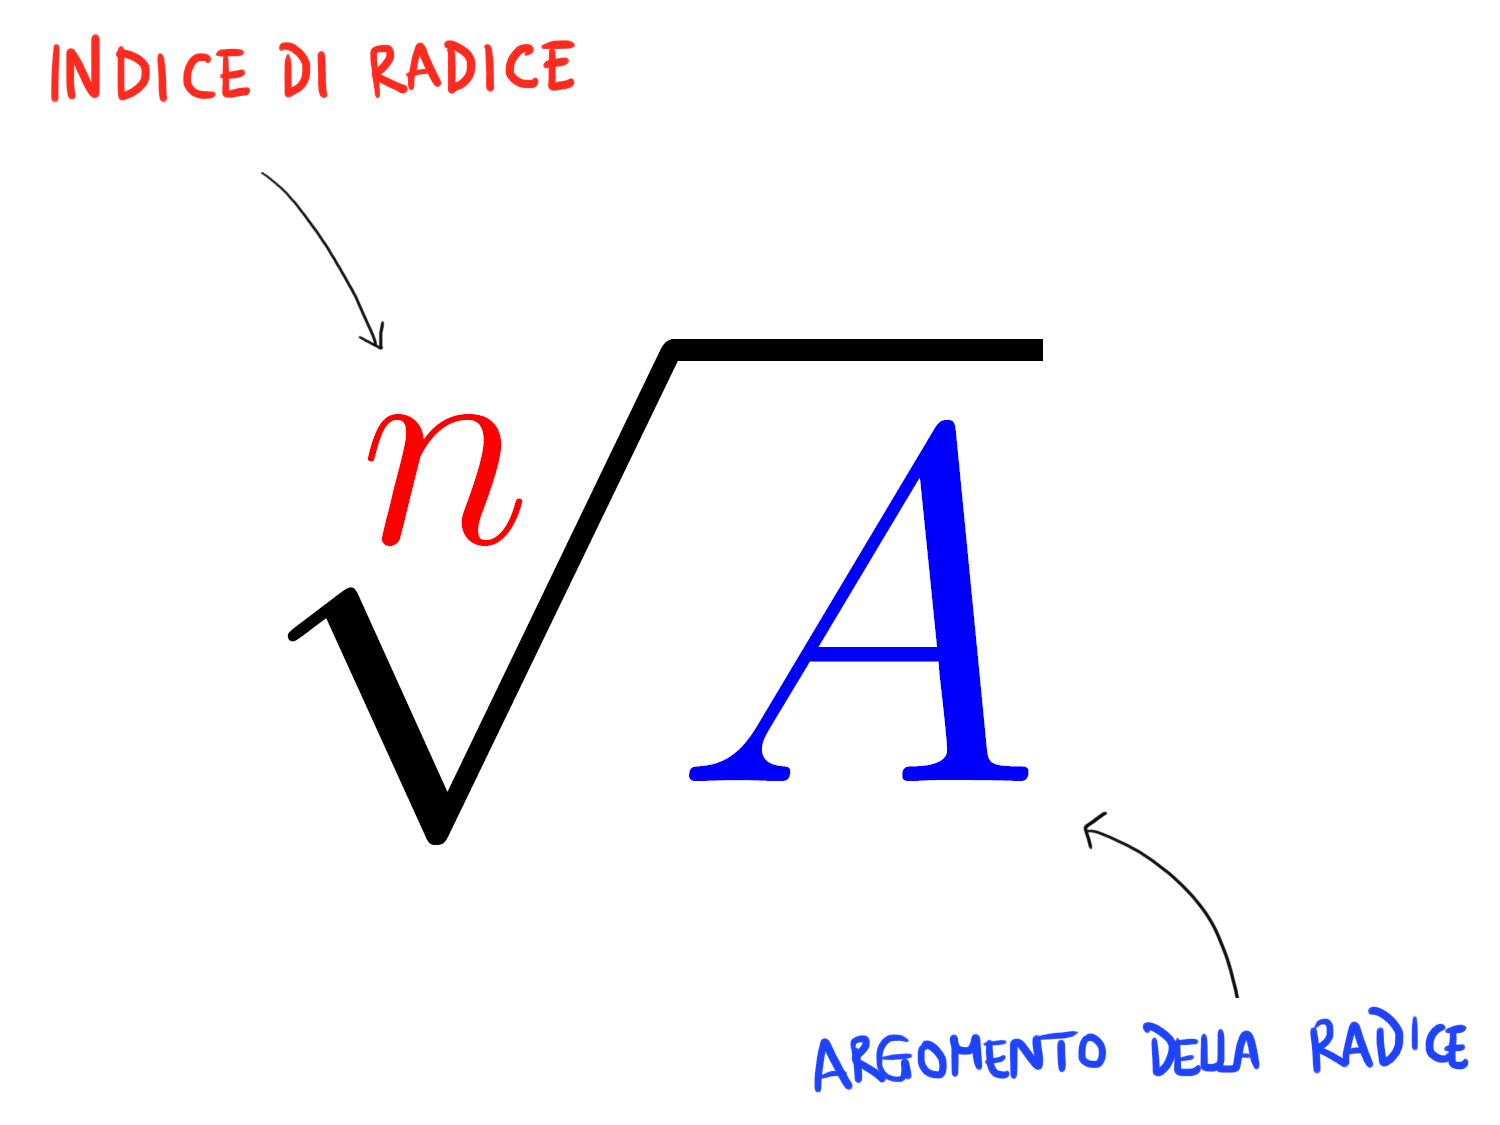 INDICE DI RADICE
n
√A
ARGOMENTO DELLA RADICE